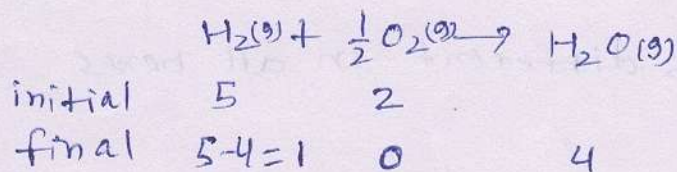 H₂(g) + ½ O₂(g) → H₂O(g)
initial 5 2
final 5-4=1 0 4